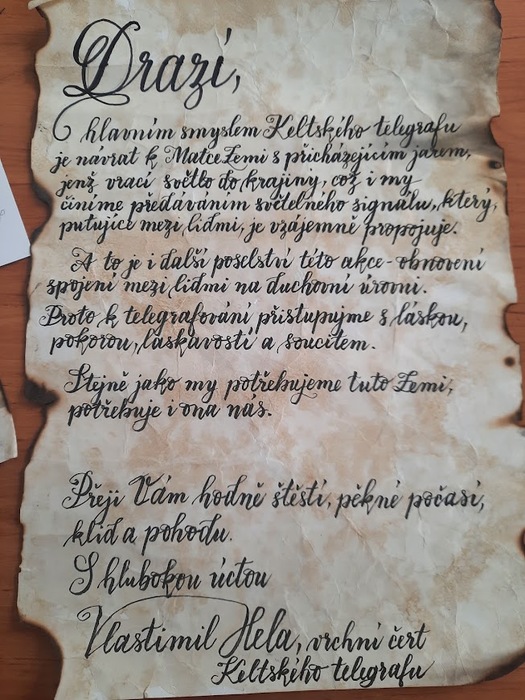 Drazí,
hlavním smyslem Keltského telegrafu
je návrat k Matce Zemi s přicházejícím jarem,
jenž vrací světlo do krajiny, což i my
činíme předáváním světelného signálu, který,
putujíce mezi lidmi, je vzájemně propojuje.
A to je i další poselství této akce - obnovení
spojení mezi lidmi na duchovní úrovni.
Proto k telegrafování přistupujme s láskou,
pokorou, laskavostí a soucitem.
Stejně jako my potřebujeme tuto Zemi,
potřebuje i ona nás.
Přeji Vám hodně štěstí, pěkné počasí,
klid a pohodu.
S hlubokou úctou
Vlastimil Hela, vrchní čert
Keltského telegrafu